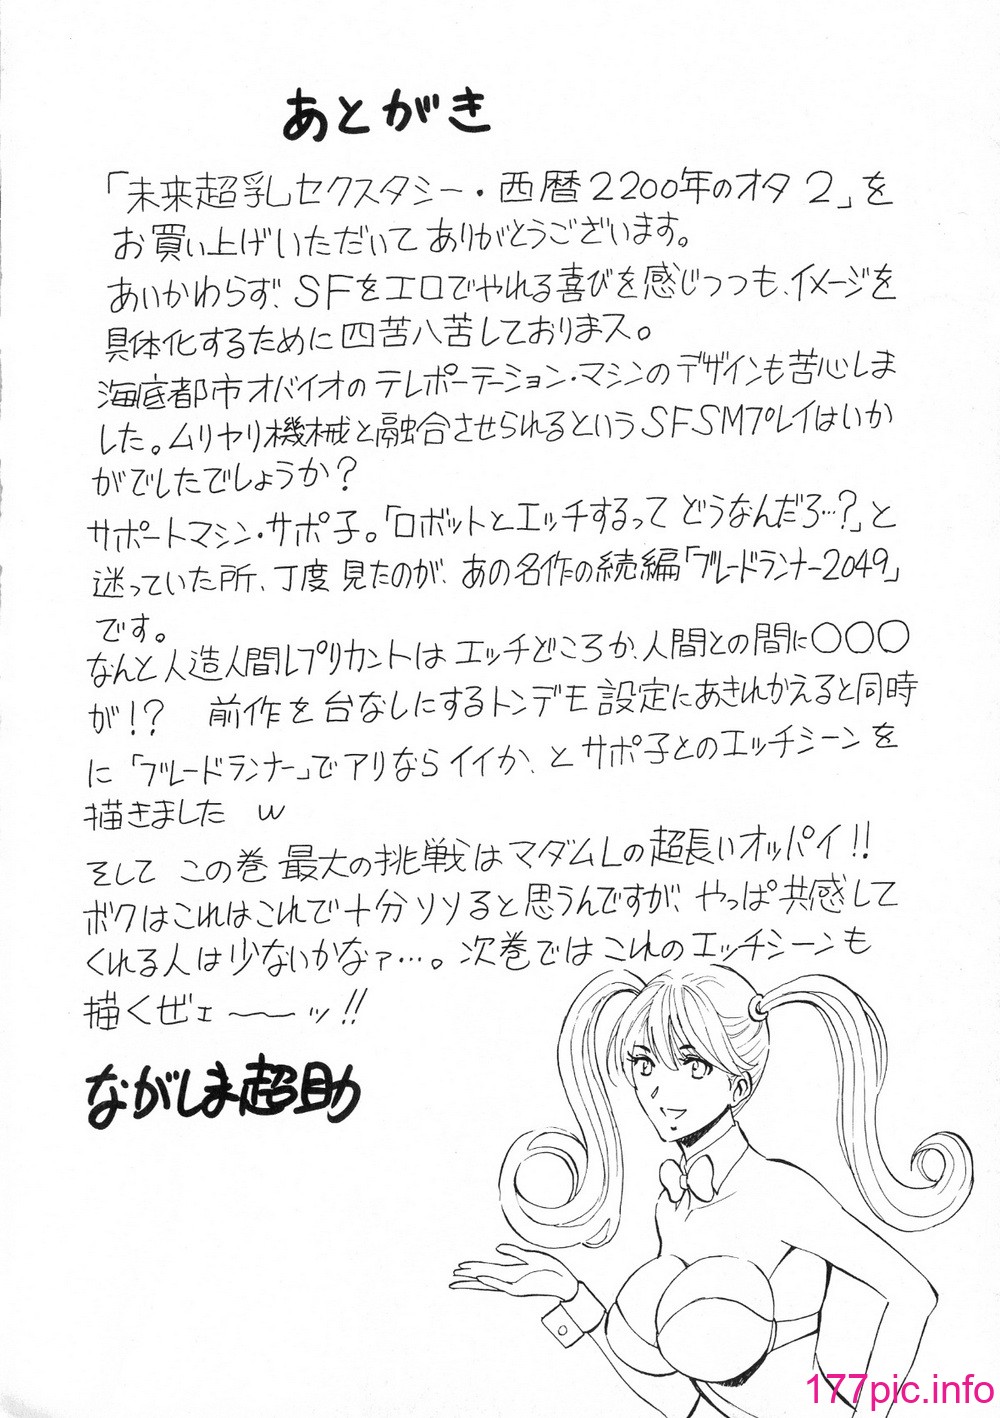 あとがき
「未来超乳セクスタシー・西暦2200年のオタ2」を
お買い上げいただいてありがとうございます。
あいかわらず、SFをエロでやれる喜びを感じつつも、イメージを
具体化するために四苦八苦しておりまス。
海底都市オバイオのテレポーテーション・マシンのデザインも苦心しま
した。ムリヤリ機械と融合させられるというSFSMプレイはいか
がでしたでしょうか?
サポートマシン・サポ子。「ロボットとエッチするってどうなんだろ…?」と
迷っていた所、丁度見たのが、あの名作の続編「ブレードランナー2049」
です。
なんと人造人間レプリカントはエッチどころか、人間との間に○○○
が!? 前作を台なしにするトンデモ設定にあきれかえると同時
に「ブレードランナー」でアリならイイか、とサポ子とのエッチシーンを
描きました w
そして この巻最大の挑戦はマダムLの超長いオッパイ!!
ボクはこれはこれで十分ソソると思うんですが、やっぱ共感して
くれる人は少ないかなァ…。次巻ではこれのエッチシーンも
描くぜェ〜〜ッ!!
ながしま超助
177pic.info